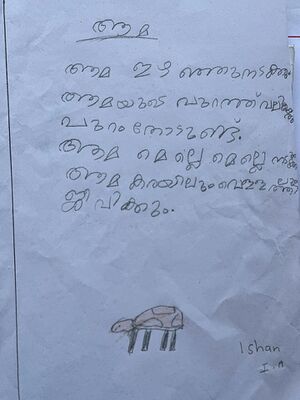 ആമ
ആമ ഇഴഞ്ഞുനടക്കും.
ആമയുടെ പുറത്ത് വലിയ
പുറംതോടുണ്ട്.
ആമ മെല്ലെ മെല്ലെ നടക്കും
ആമ കരയിലും വെള്ളത്തിലും
ജീവിക്കും.
Ishan
I-A